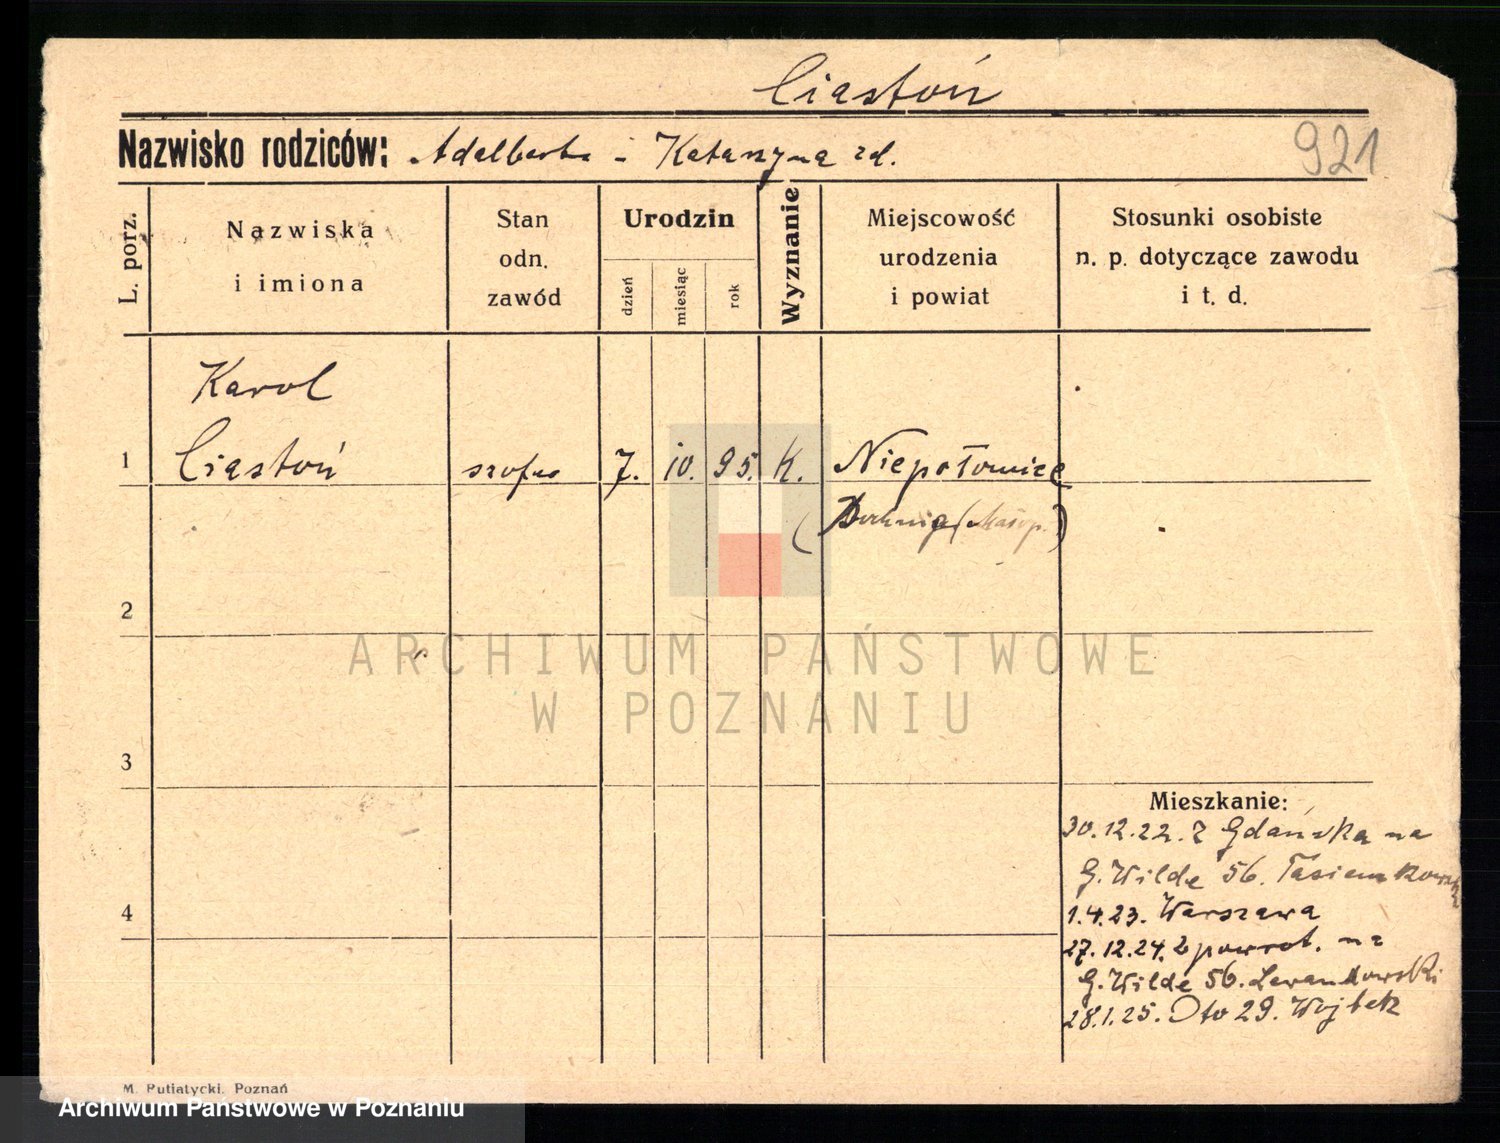 Ciastoń
Nazwisko rodziców: Adalberta - Katarzyna zd.
921
L. porz.
Nazwiska
i imiona
Stan
odn.
zawód
Urodzin
dzień
miesiąc
rok
Wyznanie
Miejscowość
urodzenia
i powiat
Stosunki osobiste
n. p. dotyczące zawodu
i t. d.
Karol
1 Ciastoń szofer 7. 10. 95. K. Niepołomice
(Bochnia (Małop.)
2
3
4
Mieszkanie:
30.12.22. z Gdańska na
G. Wilde 56. Tasiemkowski
1.4.23. Warszawa
27.12.24. z powrot. na
G. Wilde 56. Lewandowski
28.1.25. Oto 29. Wojtek
ARCHIWUM PAŃSTWOWE
W POZNANIU
M. Putiatycki, Poznań
Archiwum Państwowe w Poznaniu